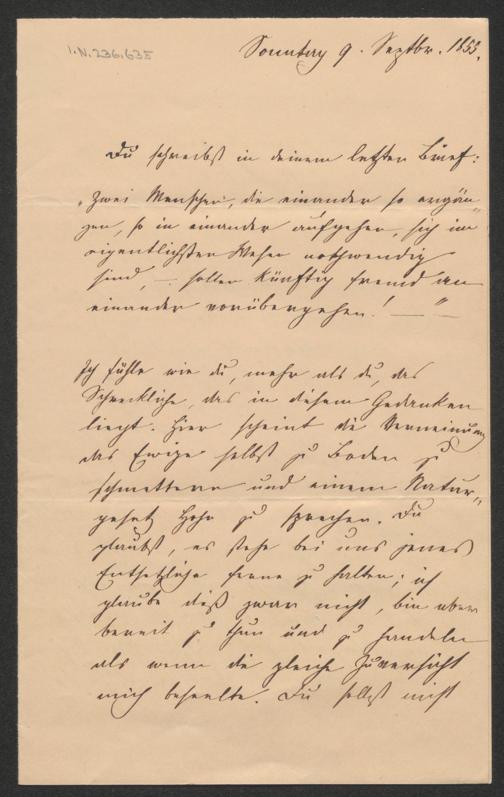 I.N. 236.635
Sonntag 9. Septbr. 1855.
Du schreibst in deinem letzten Brief:
„Zwei Menschen, die einander so ergän„
zen, so in einander aufgehen, sich im
eigentlichsten Wesen nothwendig
sind, — sollen künftig fremd an
einander vorübergehen! — “ —
Ich fühle wie du, mehr als du, das
Schreckliche, das in diesem Gedanken
liegt. Hier scheint die Verneinung
das Ewige selbst zu Boden zu
schmettern und einem Natur„
gesetz Hohn zu sprechen. Du
glaubst, es stehe bei uns jenes
Entsetzliche ferne zu halten; ich
glaube dieß zwar nicht, bin aber
bereit zu thun und zu handeln
als wenn die gleiche Zuversicht
mich beseelte. Du selbst mußt